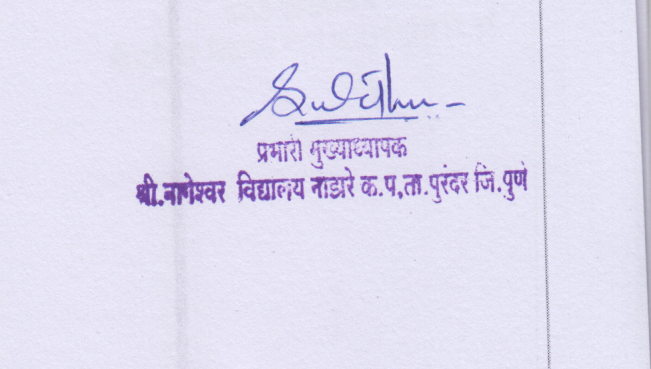 प्रभारी मुख्याध्यापक
श्री.नागेश्वर विद्यालय नाझरे क.प,ता.पुरंदर जि.पुणे